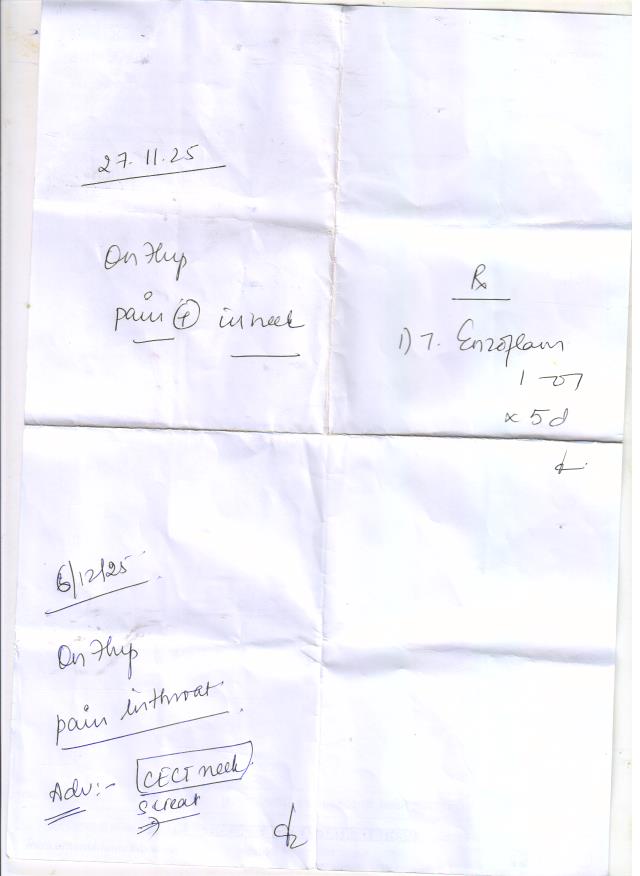 27.11.25
On F/up
pain (+) in neck
Rx
1) T. Enzoflam
1 —
x 5d
6/12/25
On F/up
pain in throat.
Adv:- CECT neck
S creat